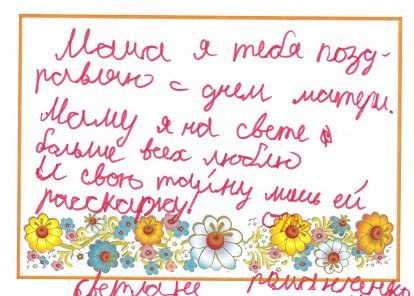 Мама я тебя позд-
равляю с днем матери.
Маму я на свете
больше всех люблю
И свою тайну лишь ей
расскажу!
светлане